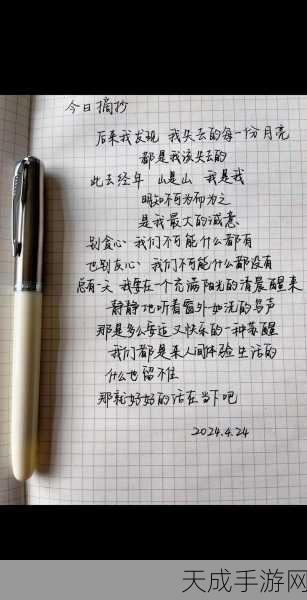 今日摘抄
后来我发现 我失去的每一份月亮
都是我该失去的
此去经年 山是山 我是我
明知不可为而为之
是我最大的诚意
别贪心 我们不可能什么都有
也别灰心 我们不可能什么都没有
总有一天 我要在一个充满阳光的清晨醒来
静静地听着窗外如洗的鸟声
那是多么安适又快乐的一种苏醒
我们都是来人间体验生活的
什么也留不住
那就好好的活在当下吧
2024.4.24
天成手游网